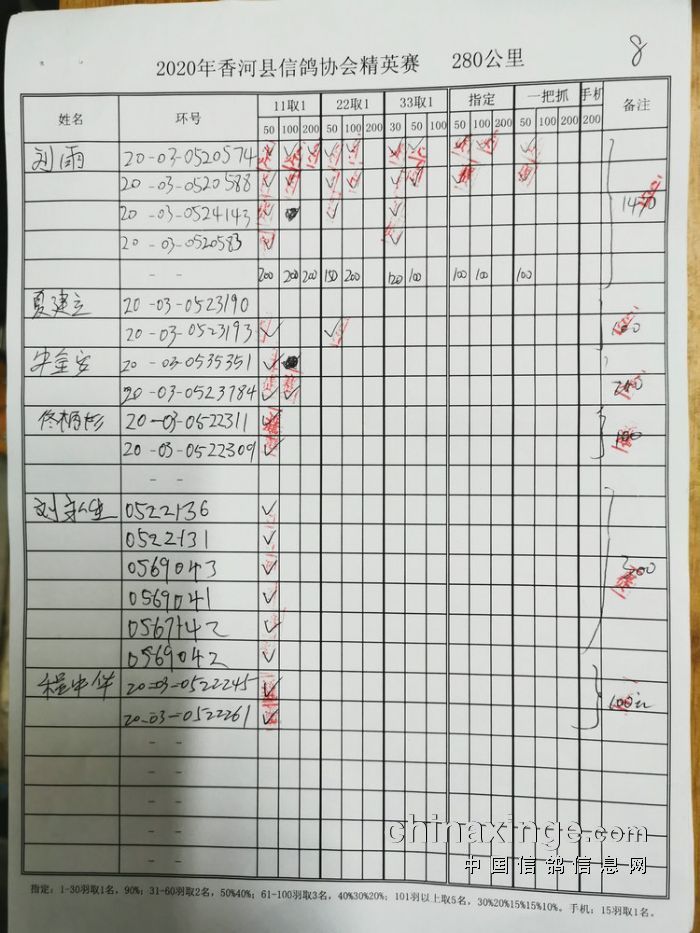 8
2020年香河县信鸽协会精英赛 280公里
姓名 环号 11取1 22取1 33取1 指定 一把抓 手机 备注
50 100 200 50 100 200 30 50 100 50 100 200 50 100 200 200
刘雨 20-03-0520574 ✓ ✓ ✓ ✓ ✓ ✓ ✓ ✓ ✓ ✓
20-03-0520588 ✓ ✓ ✓ ✓ ✓ ✓ ✓ ✓
20-03-0524143 ✓ ✓ ✓
20-03-0520583 ✓ ✓
- - 200 200 200 150 200 120 100 100 100 100
夏建立 20-03-0523190
20-03-0523193 ✓ ✓
20-03-0535351 ✓
20-03-0523784 ✓ ✓
佟柄杉 20-03-0522311 ✓
20-03-0522309 ✓ 100
- -
0522136 ✓
0522131 ✓
0569043 ✓
0569041 ✓
0567142 ✓
0569042 ✓
程中华 20-03-0522245 ✓
20-03-0522261 ✓
- -
- -
- -
- -
- -
chinaxinge.com
中国信鸽信息网
指定：1-30羽取1名，90%；31-60羽取2名，50%40%；61-100羽取3名，40%30%20%；101羽以上取5名，30%20%15%15%10%。手机：15羽取1名。